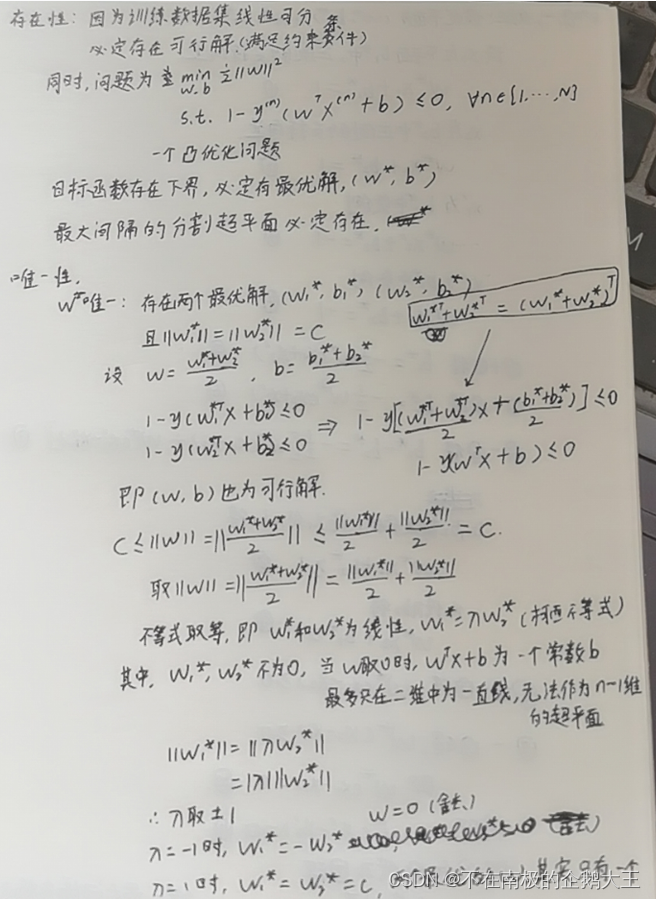 存在性: 因为训练数据集线性可分
必定存在可行解.(满足约束条件)
同时,问题为 min w,b ½||w||²
s.t. 1-y⁽ⁿ⁾(wᵀx⁽ⁿ⁾+b) ≤0, ∀n∈{1,…,N}
一个凸优化问题
目标函数存在下界,必定有最优解,(w*, b*)
最大间隔的分割超平面必定存在.
唯一性.
w*唯一: 存在两个最优解,(w₁*, b₁*) (w₂*, b₂*)
w₁*ᵀ+w₂*ᵀ = (w₁*+w₂*)ᵀ
且||w₁*||=||w₂*|| =C
设 w= (w₁*+w₂*)/2 , b= (b₁*+b₂*)/2
1-y(w₁*ᵀx+b₁*)≤0
1-y(w₂*ᵀx+b₂*)≤0 ⇒ 1-y[(w₁*ᵀ+w₂*ᵀ)/2 x+(b₁*+b₂*)/2]≤0
1-y(wᵀx+b)≤0
即(w,b)也为可行解.
C≤||w||=||(w₁*+w₂*)/2|| ≤ ||w₁*||/2+||w₂*||/2=C.
取||w||=||(w₁*+w₂*)/2||=||w₁*||/2+||w₂*||/2
不等式取等,即 w₁*和w₂*为线性,w₁*=λw₂*(柯西不等式)
其中, w₁*,w₂*不为0, 当w取0时, wᵀx+b为一个常数b
最多只在二维中为一直线,无法作为n-1维
的超平面
||w₁*||=||λw₂*||
=|λ|||w₂*||
∴λ取±1
w=0(舍去)
λ=-1时, w₁*=-w₂*
λ=1时, w₁*=w₂*=C,
CSDN @不在南极的企鹅大王